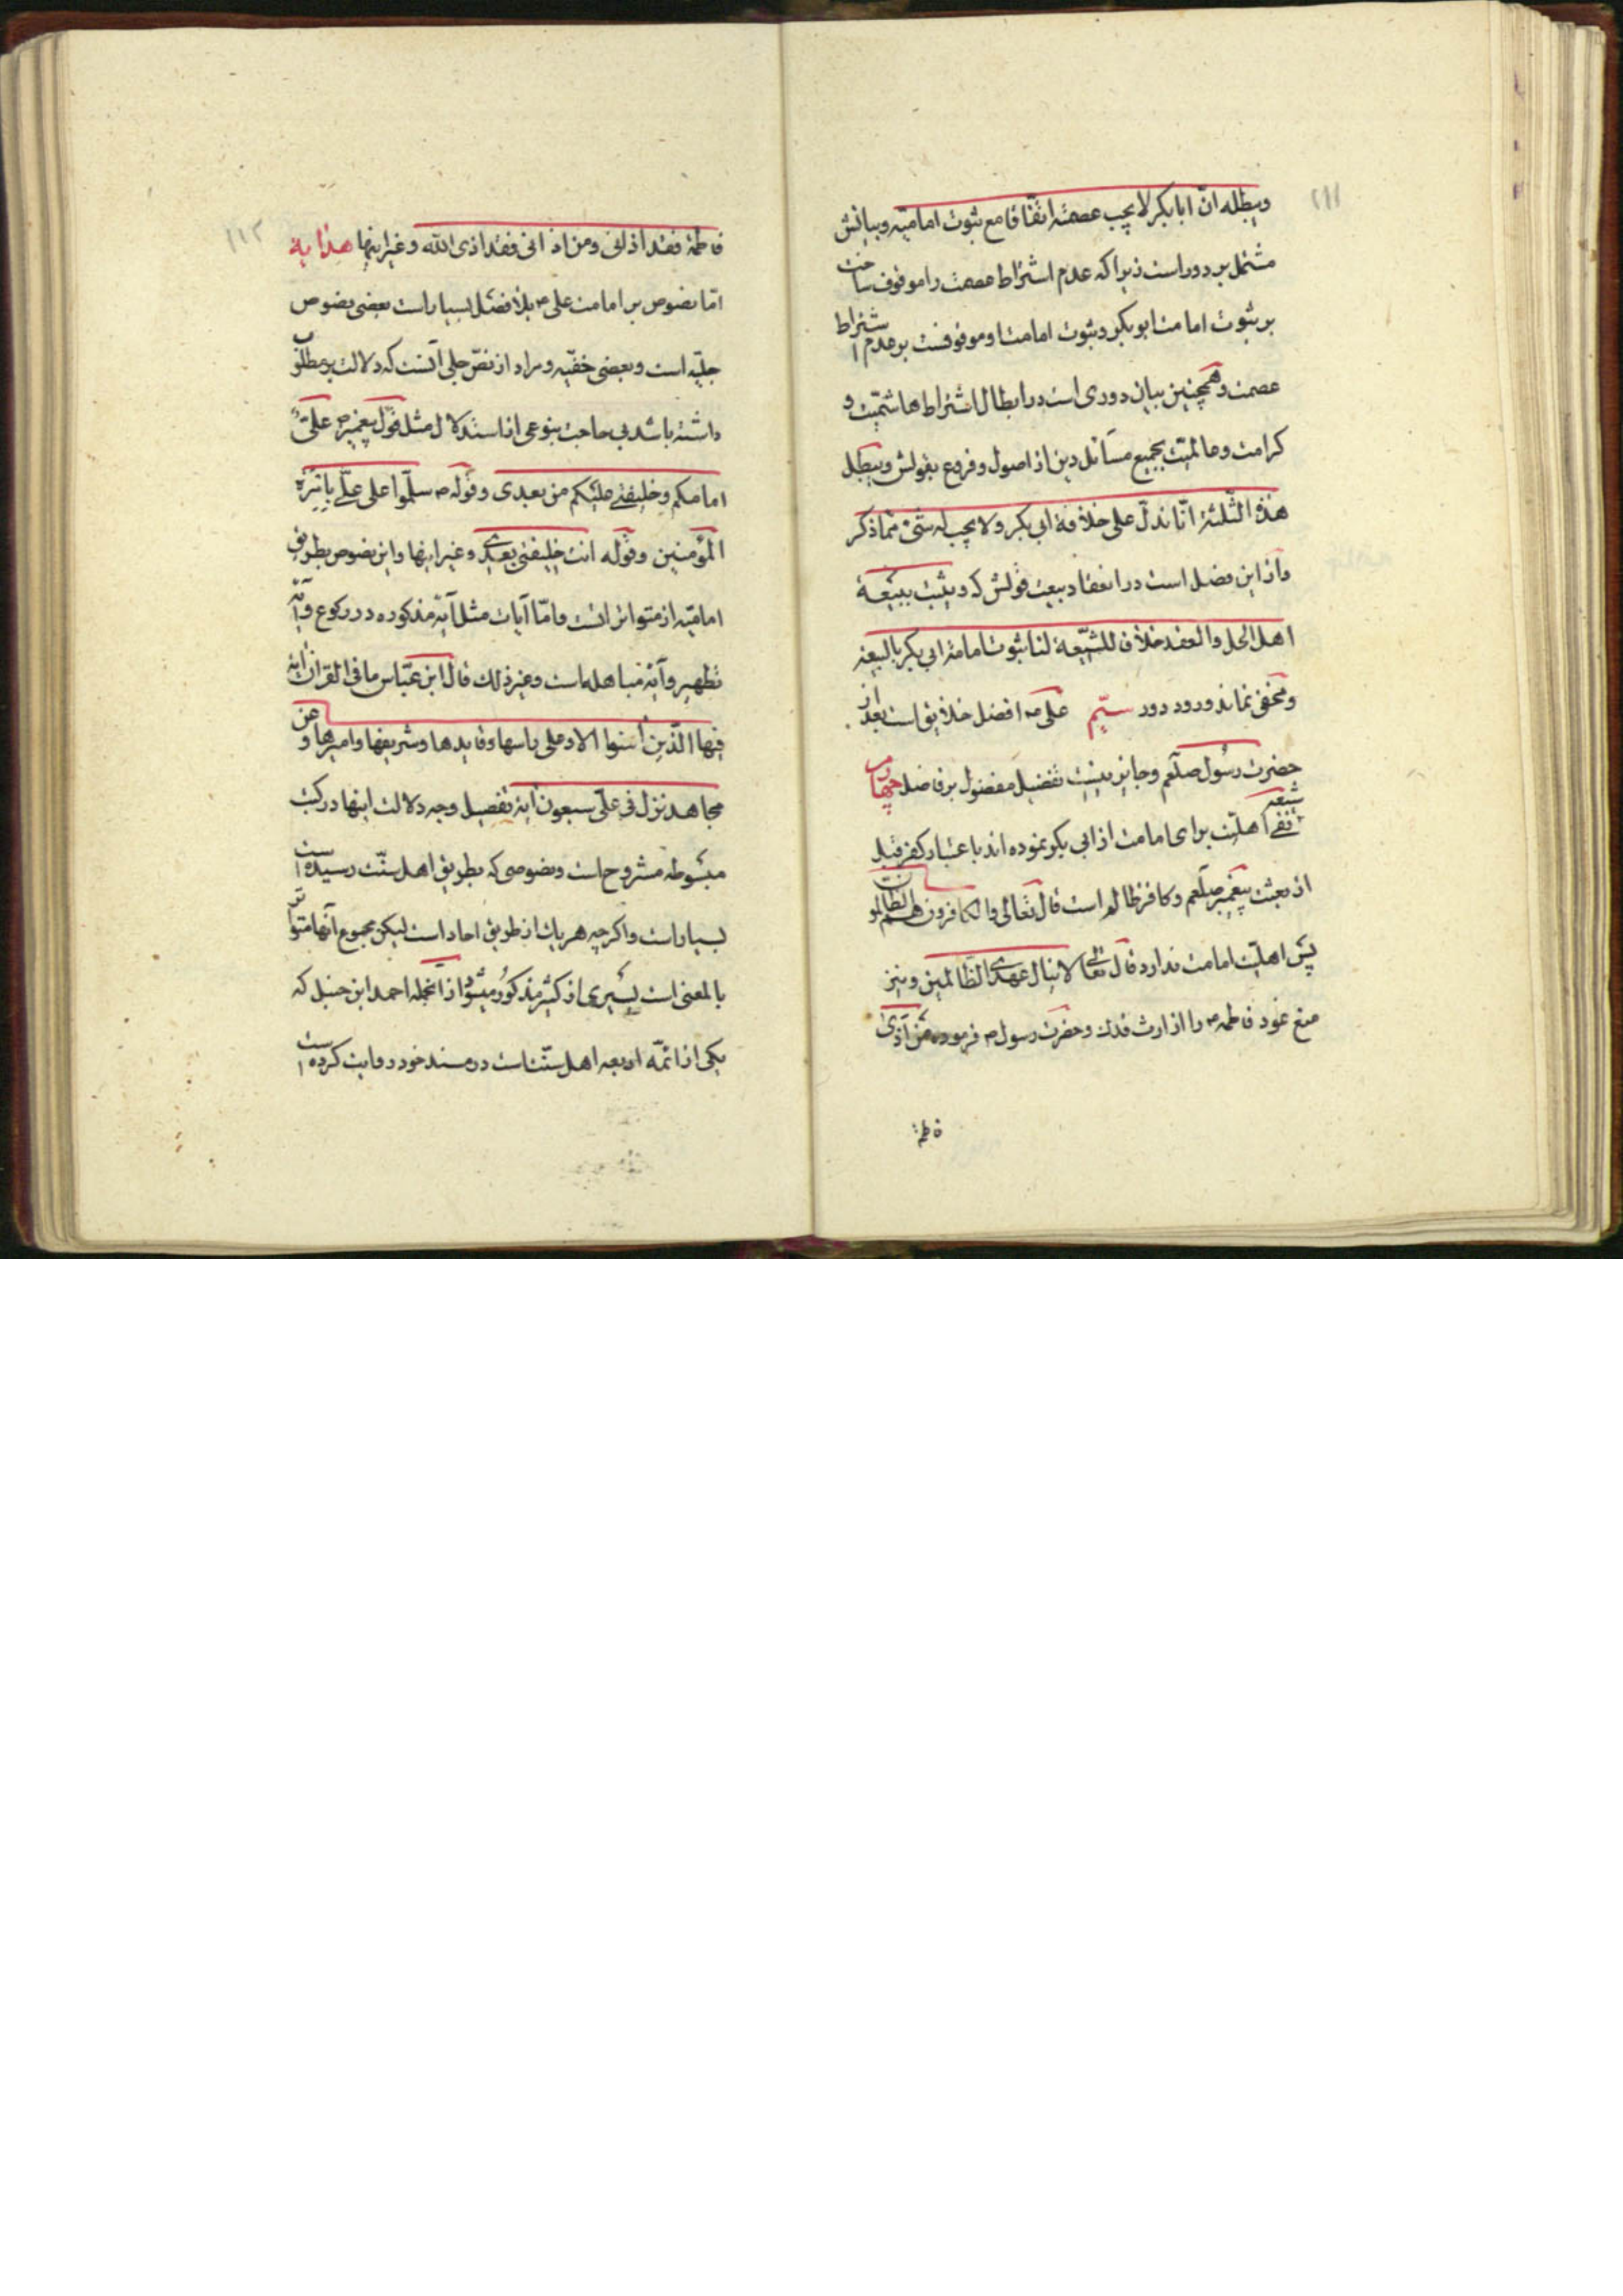 ۱۱۱
ویبطله ان ابابکر لا یجب عصمته اتفاقا مع ثبوت امامته وبیانش
مشتمل بر دور است زیرا که عدم اشتراط عصمت را موقوف ساخت
بر ثبوت امامت ابوبکر و ثبوت امامت او موقوفست بر عدم اشتراط
عصمت و همچنین بیان دوری است در ابطال اشتراط هاشمیت و
کرامت و عالمیت بجمیع مسائل دین از اصول و فروع بقولش ویبطل
هذه الثلثة انا ندل علی خلافة ابی بکر ولا یجب له شیء مما ذکر
و از این فصل است در انعقاد بیعت قولش که ویثبت ببیعة
اهل الحل والعقد خلافا للشیعة لنا ثبوت امامة ابی بکر بالبیعة
و مخفی نماند ورود دور سیّم علی م افضل خلایق است بعد از
حضرت رسول صلعم و جایز نیست تفضیل مفضول بر فاضل چهارم
شیعه نفی اهلیت برای امامت از ابی بکر نموده اند باعتبار کفر قبل
از بعثت پیغمبر صلعم و کافر ظالم است قال تعالی والکافرون هم الظالمون
پس اهلیت امامت ندارد قال تعالی لا ینال عهدی الظالمین و نیز
منع نمود فاطمه م را از ارث فدک و حضرت رسول م فرموده من آذی
فاطمة
۱۱۲
فاطمة فقد اذانی ومن اذانی فقد اذی الله وغیر اینها هدایه
اما نصوص بر امامت علی م بلا فصل بسیار است بعضی نصوص
جلیه است و بعضی خفیه و مراد از نص جلی آنست که دلالت بر مطلوب
داشته باشد بی حاجت بنوعی از استدلال مثل قول پیغمبر م علی
امامکم وخلیفتی علیکم من بعدی وقوله م سلموا علی علی بامرة
المؤمنین وقوله انت خلیفتی بعدی وغیر اینها و این نصوص بطریق
امامیه از متواتراتست و اما آیات مثل آیه مذکوره در رکوع و آیه
تطهیر و آیه مباهله است وغیر ذلک قال ابن عباس ما فی القران آیة
فیها الذین آمنوا الا وعلی راسها وقایدها وشریفها وامیرها وعن
مجاهد نزل فی علی سبعون آیة تفصیل وجه دلالت اینها در کتب
مبسوطه مشروح است و نصوصی که بطریق اهل سنت رسیده است
بسیار است و اگرچه هر یک از طریق احاد است لیکن مجموع آنها متواتر
بالمعنی است یسیری از کثیر مذکور میشود از آنجمله احمد ابن حنبل که
یکی از ائمه اربعه اهل سنت است در مسند خود روایت کرده است